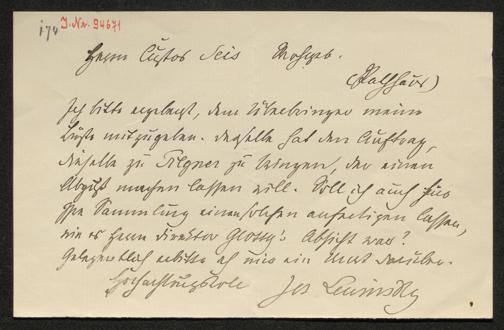 174 J. Nr. 94671
Herrn Custos Seis
(Rathhaus)
Ich bitte ergebenst, dem Überbringer meine
Büste mitzugeben. Derselbe hat den Auftrag,
dieselbe zu Tilgner zu bringen, der einen
Abguß machen lassen will. Soll ich auch für
Sammlung einen solchen anfertigen lassen,
wie es Herrn Direktor Glossy's Absicht war?
Gelegentlich erbitte ich mir ein Wort darüber.
Hochachtungsvoll Jos Lewinsky